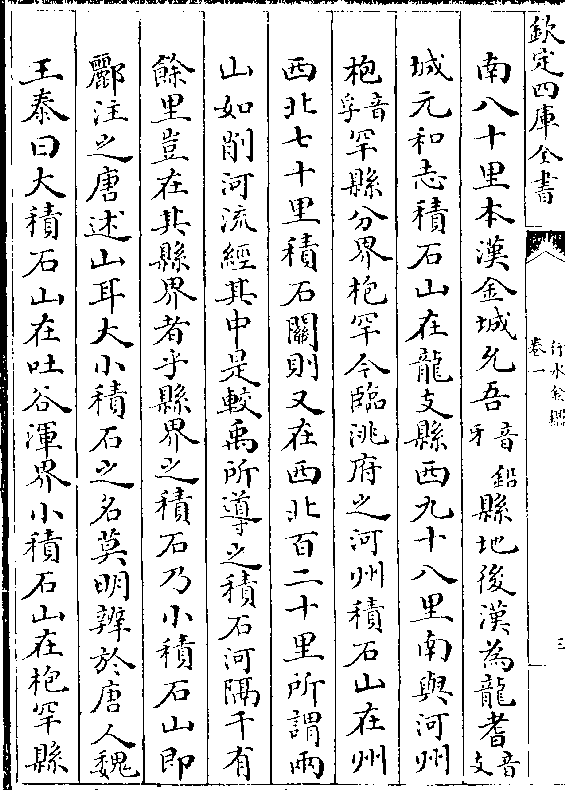 欽定四庫全書
行水金鑑
卷一
三
南八十里本漢金城允吾音鉛牙縣地後漢為龍耆音支
城元和志積石山在龍支縣西九十八里南與河州
枹音孚罕縣分界枹罕今臨洮府之河州積石山在州
西北七十里積石關則又在西北百二十里所謂兩
山如削河流經其中是較禹所導之積石河隔千有
餘里豈在其縣界者乎縣界之積石乃小積石山即
酈注之唐述山耳大小積石之名莫明辨於唐人魏
王泰曰大積石山在吐谷渾界小積石山在枹罕縣